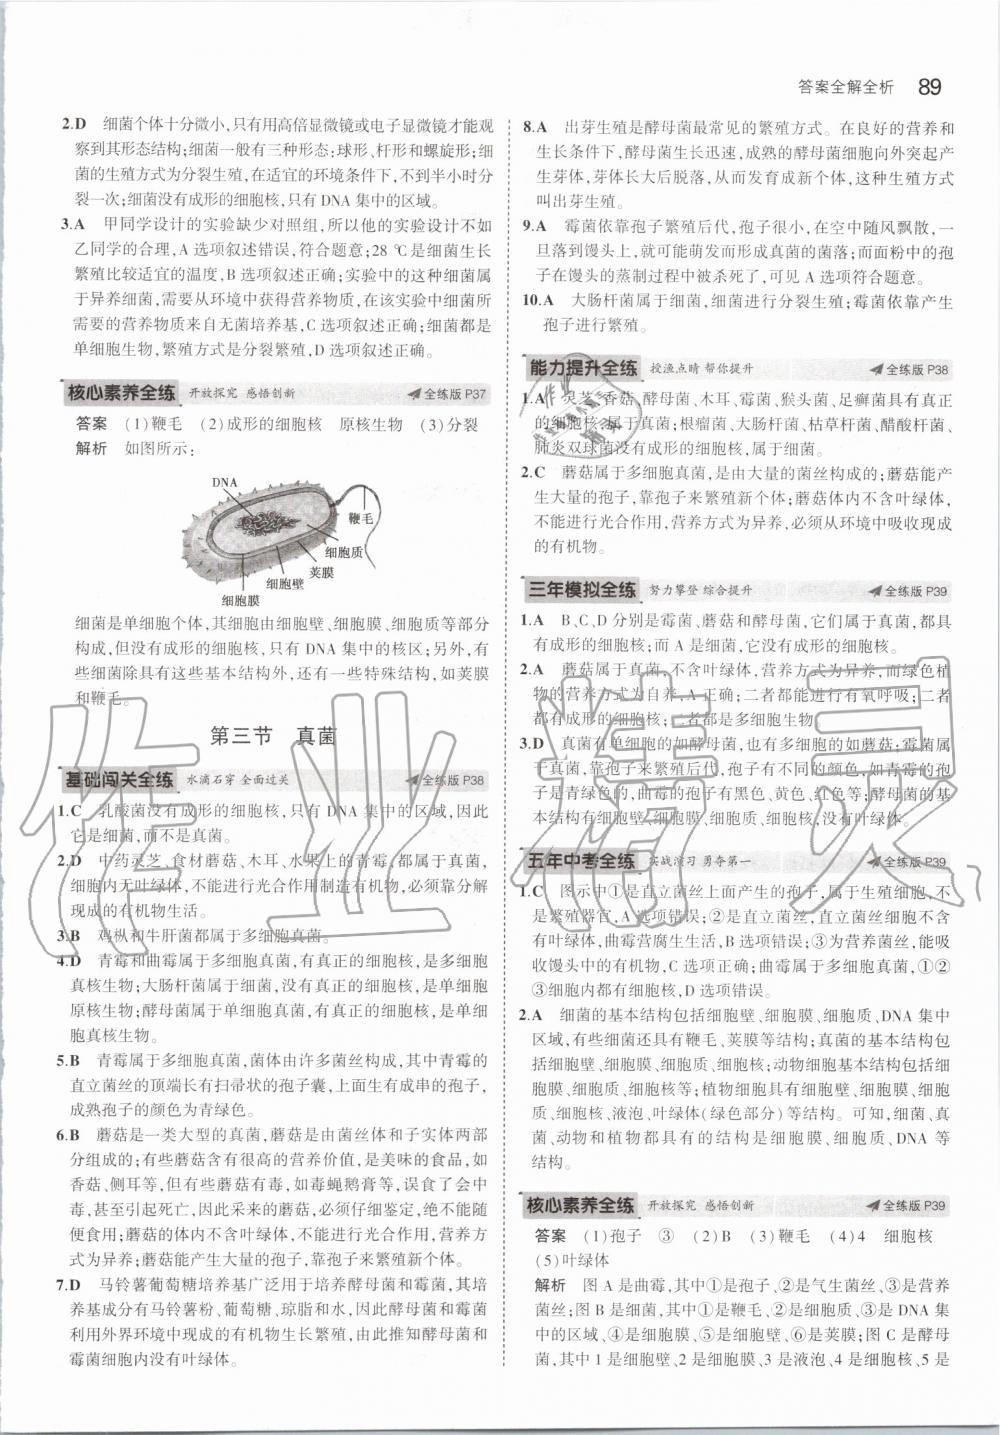 答案全解全析 89
2.D 细菌个体十分微小,只有用高倍显微镜或电子显微镜才能观
察到其形态结构;细菌一般有三种形态:球形、杆形和螺旋形;细
菌的生殖方式为分裂生殖,在适宜的环境条件下,不到半小时分
裂一次;细菌没有成形的细胞核,只有 DNA 集中的区域。
3.A 甲同学设计的实验缺少对照组,所以他的实验设计不如
乙同学的合理,A 选项叙述错误,符合题意;28 ℃是细菌生长
繁殖比较适宜的温度,B 选项叙述正确;实验中的这种细菌属
于异养细菌,需要从环境中获得营养物质,在该实验中细菌所
需要的营养物质来自无菌培养基,C 选项叙述正确;细菌都是
单细胞生物,繁殖方式是分裂繁殖,D 选项叙述正确。
核心素养全练 开放探究 感悟创新 全练版 P37
答案 (1)鞭毛 (2)成形的细胞核 原核生物 (3)分裂
解析 如图所示:
DNA
鞭毛
细胞质
荚膜
细胞壁
细胞膜
细菌是单细胞个体,其细胞由细胞壁、细胞膜、细胞质等部分
构成,但没有成形的细胞核,只有 DNA 集中的核区;另外,有
些细菌除具有这些基本结构外,还有一些特殊结构,如荚膜
和鞭毛。
第三节 真菌
基础闯关全练 水滴石穿 全面过关 全练版 P38
1.C 乳酸菌没有成形的细胞核,只有 DNA 集中的区域,因此
它是细菌,而不是真菌。
2.D 中药灵芝、食材蘑菇、木耳、水果上的青霉,都属于真菌,
细胞内无叶绿体,不能进行光合作用制造有机物,必须靠分解
现成的有机物生活。
3.B 鸡枞和牛肝菌都属于多细胞真菌。
4.D 青霉和曲霉属于多细胞真菌,有真正的细胞核,是多细胞
真核生物;大肠杆菌属于细菌,没有真正的细胞核,是单细胞
原核生物;酵母菌属于单细胞真菌,有真正的细胞核,是单细
胞真核生物。
5.B 青霉属于多细胞真菌,菌体由许多菌丝构成,其中青霉的
直立菌丝的顶端长有扫帚状的孢子囊,上面生有成串的孢子,
成熟孢子的颜色为青绿色。
6.B 蘑菇是一类大型的真菌,蘑菇是由菌丝体和子实体两部
分组成的;有些蘑菇含有很高的营养价值,是美味的食品,如
香菇、侧耳等,但有些蘑菇有毒,如毒蝇鹅膏等,误食了会中
毒,甚至引起死亡,因此采来的蘑菇,必须仔细鉴定,绝不能随
便食用;蘑菇的体内不含叶绿体,不能进行光合作用,营养方
式为异养;蘑菇能产生大量的孢子,靠孢子来繁殖新个体。
7.D 马铃薯葡萄糖培养基广泛用于培养酵母菌和霉菌,其培
养基成分有马铃薯粉、葡萄糖、琼脂和水,因此酵母菌和霉菌
利用外界环境中现成的有机物生长繁殖,由此推知酵母菌和
霉菌细胞内没有叶绿体。
8.A 出芽生殖是酵母菌最常见的繁殖方式。在良好的营养和
生长条件下,酵母菌生长迅速,成熟的酵母菌细胞向外突起产
生芽体,芽体长大后脱落,从而发育成新个体,这种生殖方式
叫出芽生殖。
9.A 霉菌依靠孢子繁殖后代,孢子很小,在空中随风飘散,一
旦落到馒头上,就可能萌发而形成真菌的菌落;而面粉中的孢
子在馒头的蒸制过程中被杀死了,可见 A 选项符合题意。
10.A 大肠杆菌属于细菌,细菌进行分裂生殖;霉菌依靠产生
孢子进行繁殖。
能力提升全练 授渔点睛 帮你提升 全练版 P38
1.A 灵芝、香菇、酵母菌、木耳、霉菌、猴头菌、足癣菌具有真正
的细胞核,属于真菌;根瘤菌、大肠杆菌、枯草杆菌、醋酸杆菌、
肺炎双球菌没有成形的细胞核,属于细菌。
2.C 蘑菇属于多细胞真菌,是由大量的菌丝构成的;蘑菇能产
生大量的孢子,靠孢子来繁殖新个体;蘑菇体内不含叶绿体,
不能进行光合作用,营养方式为异养,必须从环境中吸收现成
的有机物。
三年模拟全练 努力攀登 综合提升 全练版 P39
1.A B、C、D 分别是霉菌、蘑菇和酵母菌,它们属于真菌,都具
有成形的细胞核;而 A 是细菌,它没有成形的细胞核。
2.A 蘑菇属于真菌,不含叶绿体,营养方式为异养,而绿色植
物的营养方式为自养,A 正确;二者都能进行有氧呼吸;二者
都有成形的细胞核;二者都是多细胞生物。
3.D 真菌有单细胞的如酵母菌,也有多细胞的如蘑菇;霉菌属
于真菌,依靠孢子繁殖后代,但是有不同的颜色,如青霉的孢
子是青绿色的,曲霉的孢子有黑色、黄色、红色等;酵母菌的基
本结构有细胞壁、细胞膜、细胞质、细胞核,没有叶绿体。
五年中考全练 实战演习 勇夺第一 全练版 P39
1.C 图示中①是直立菌丝上面产生的孢子,属于生殖细胞,不
是繁殖器官,A 选项错误;②是直立菌丝,直立菌丝细胞不含
有叶绿体,曲霉营腐生生活,B 选项错误;③为营养菌丝,能吸
收馒头中的有机物,C 选项正确;曲霉属于多细胞真菌,①②
③细胞内都有细胞核,D 选项错误。
2.A 细菌的基本结构包括细胞壁、细胞膜、细胞质、DNA 集中
区域,有些细菌还具有鞭毛、荚膜等结构;真菌的基本结构包
括细胞壁、细胞膜、细胞质、细胞核;动物细胞基本结构包括细
胞膜、细胞质、细胞核等;植物细胞具有细胞壁、细胞膜、细胞
质、细胞核、液泡、叶绿体(绿色部分)等结构。可知,细菌、真
菌、动物和植物都具有的结构是细胞膜、细胞质、DNA 等
结构。
核心素养全练 开放探究 感悟创新 全练版 P39
答案 (1)孢子 ③ (2)B (3)鞭毛 (4)4 细胞核
(5)叶绿体
解析 图 A 是曲霉,其中①是孢子、②是气生菌丝、③是营养
菌丝;图 B 是细菌,其中①是鞭毛、②是细胞质、③是 DNA 集
中的区域、④是细胞膜、⑤是细胞壁、⑥是荚膜;图 C 是酵母
菌,其中 1 是细胞壁、2 是细胞膜、3 是液泡、4 是细胞核、5 是
作业精灵